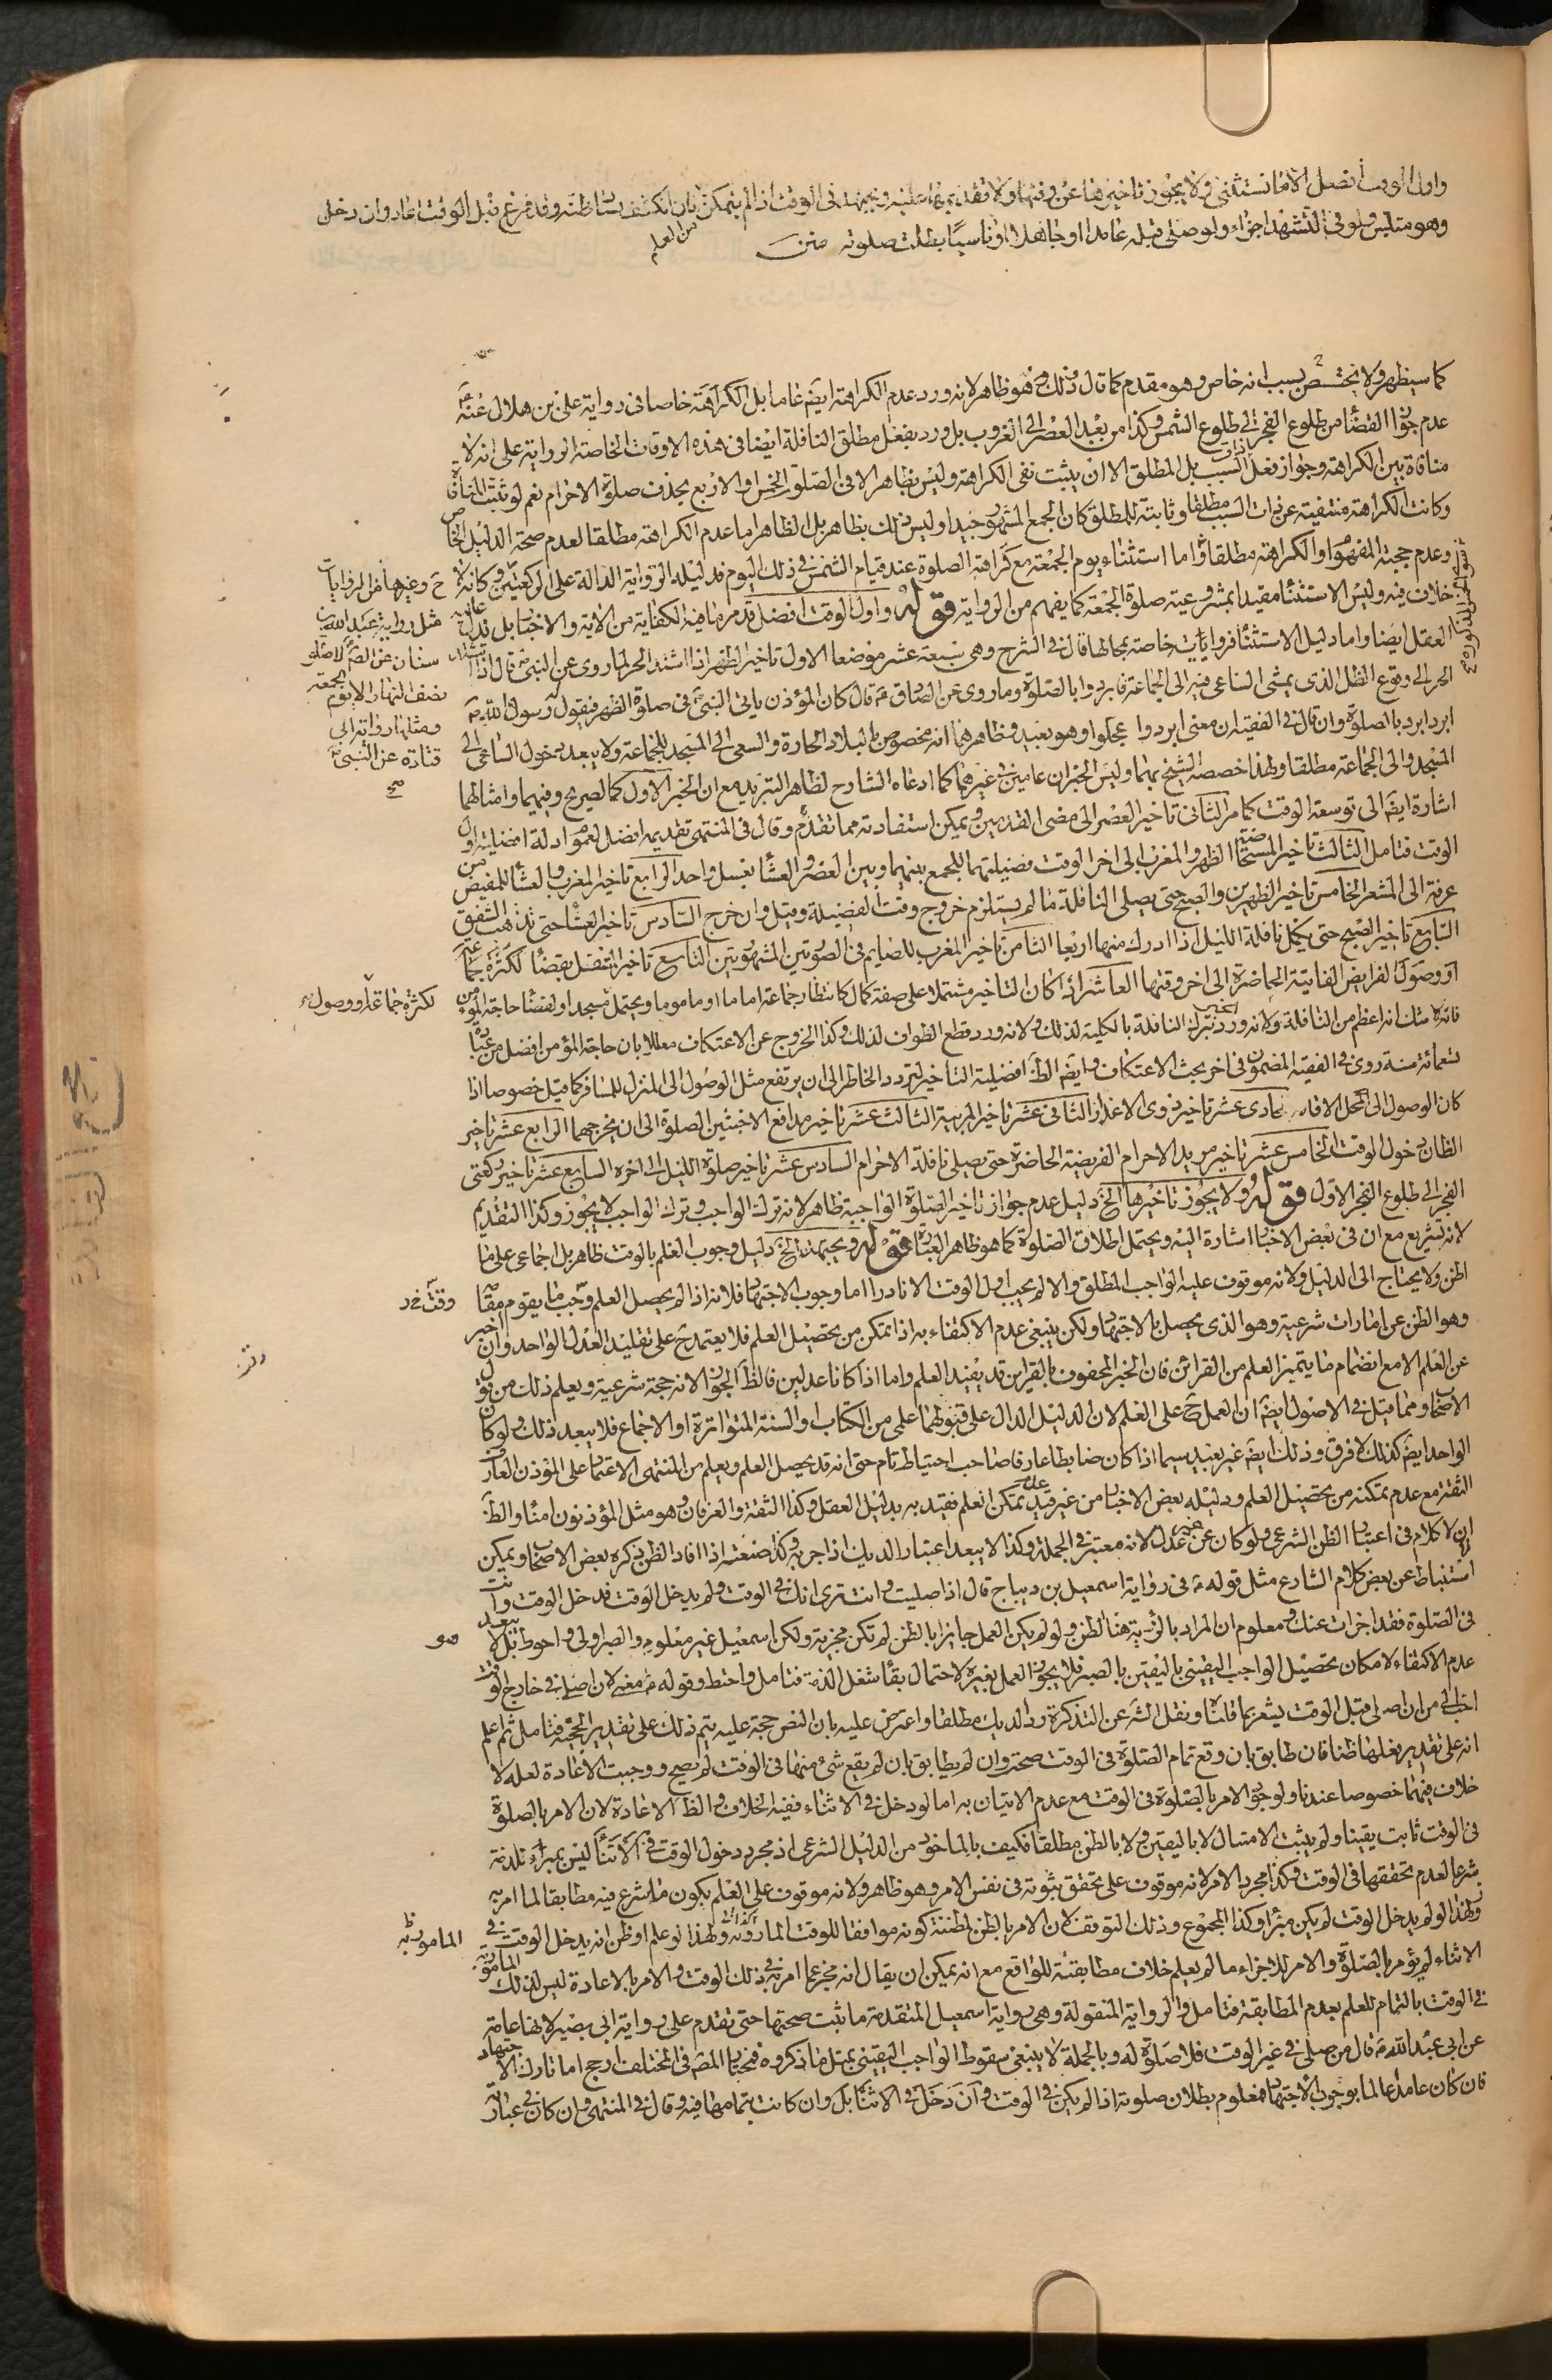 واول الوقت أفضل الا ما نستثنى ولا يجوز تاخيرها عن وقتها ولا تقديمها عليه ويجتهد فى الوقت اذا لم يتمكن من العلم فان انكشف فساد ظنه وقد فرغ قبل الوقت اعاد وان دخل
وهو متلبس ولو فى التشهد اجزاء ولو صلى قبله عامدا او جاهلا او ناسيا بطلت صلوته متن
كما سيظهر ولا يختص بسبب انه خاص وهو مقدم كما قال ذلك وهو ظاهر لانه ورد عدم الكراهة ايضا عاما بل الكراهة خاصا فى رواية على بن هلال عنه
عدم جواز القضا من طلوع الفجر الى طلوع الشمس وكذا من بعد العصر الى الغروب بل ورد بفعل مطلق النافلة ايضا فى هذه الاوقات الخاصة الرواية على انه لا
منافاة بين الكراهة وجواز فعل ذات السبب بل المطلق الا ان يثبت نفى الكراهة وليس بظاهر الا فى الصلوات الخمس او الاربع بحذف صلوة الاحرام نعم لو ثبت المنافاة
وكانت الكراهة منتفية عن ذات السبب مطلقا وثابتة للمطلق كان الجمع المشهور جيدا وليس ذلك بظاهر بل الظاهر اما عدم الكراهة مطلقا لعدم صحة الدليل الخاص
وعدم حجية المفهوم او الكراهة مطلقا واما استثناء يوم الجمعة مع كراهة الصلوة عند قيام الشمس فى ذلك اليوم فدليله الرواية الدالة على الركعتين وكانه لا
خلاف فيه وليس الاستثنا مقيدا بمشروعية صلوة الجمعة كما يفهم من الرواية قوله واول الوقت افضل قد مر ما فيه الكفاية من الاية والاخبار بل قد
العقل ايضا واما دليل الاستثنا فروايات خاصة بمحالها قال فى الشرح وهى سبعة عشر موضعا الاول تاخير الظهر اذا اشتد الحر لما روى عن النبى قال اذا اشتد
الحر الى وقوع الظل الذى يمشى الساعى فيه الى الجماعة فابردوا بالصلوة وما روى عن الصادق ع قال كان المؤذن ياتى النبى ص فى صلوة الظهر فيقول له رسول الله ص
ابرد ابرد بالصلوة وان قال فى الفقيه ان معنى ابردوا عجلوا وهو بعيد فظاهرهما انه مخصوص بالبلاد الحارة والسعى الى المسجد للجماعة ولا يبعد شمول الساعى الى
المسجد والى الجماعة مطلقا ولهذا خصصه الشيخ بهما وليس الخبران عامين فى غيرهما كما ادعاه الشارح لظاهر التبريد مع ان الخبر الاول كالصريح وفيهما وامثالهما
اشارة ايضا الى توسعة الوقت كما مر الثانى تاخير العصر الى مضى القدمين ويمكن استفادته مما تقدم وقال فى المنتهى تقديمه افضل لعموم ادلة افضلية اول
الوقت فتامل الثالث تاخير المستحاضة الظهر والمغرب الى اخر الوقت فضيلتهما للجمع بينهما وبين العصر والعشا بغسل واحد الرابع تاخير المغرب والعشا للمفيض من
عرفة الى المشعر الخامس تاخير الظهرين والصبح حتى يصلى النافلة ما لم يستلزم خروج وقت الفضيلة وقيل وان خرج السادس تاخير العشا حتى تذهب الشفق
السابع تاخير الصبح حتى يكمل نافلة الليل اذا ادرك منها اربعا الثامن تاخير المغرب للصايم فى الصورتين المشهورتين التاسع تاخير المتنفل بقضا
او وصول الفرايض الفايتة الحاضرة الى اخر وقتها العاشر اذا كان التاخير مشتملا على صفة كمال كانتظار جماعة اماما او ماموما ويحتمل مسجد او لقضا حاجة المؤمن
فانه لا شك انه اعظم من النافلة ولانه ورد ترك النافلة بالكلية لذلك ولانه ورد قطع الطواف لذلك وكذا الخروج عن الاعتكاف معللا بان حاجة المؤمن افضل من عبادة
تسعمائة سنة روى فى الفقيه المضمون فى اخر بحث الاعتكاف وايضا الظ افضلية التاخير لتردد الخاطر الى ان يرتفع مثل الوصول الى المنزل للمسافر كما قيل خصوصا اذا
كان الوصول الى المحل الحادى عشر تاخير ذوى الاعذار الثانى عشر تاخير المربية الثالث عشر تاخير مدافع الاخبثين الصلوة الى ان يخرجهما الرابع عشر تاخير
الظان دخول الوقت الخامس عشر تاخير مريد الاحرام الفريضة الحاضرة حتى يصلى نافلة الاحرام السادس عشر تاخير صلوة الليل الى اخره السابع عشر تاخير ركعتى
الفجر الى طلوع الفجر الاول قوله ولا يجوز تاخيرها الخ دليل عدم جواز تاخير الصلوة الواجبة ظاهر لانه ترك الواجب وترك الواجب لا يجوز وكذا التقديم
لانه تشريع مع ان فى بعض الاخبار اشارة اليه ويحتمل اطلاق الصلوة كما هو ظاهر العبارة قوله ويجتهد الخ دليل وجوب العلم بالوقت ظاهر بل اجماعى على ما
اظن ولا يحتاج الى الدليل ولانه موقوف عليه الواجب المطلق والا لم يجب اول الوقت الا نادرا اما وجوب الاجتهاد فلانه اذا لم يحصل العلم وجب ما يقوم مقامه
وهو الظن عن امارات شرعية وهو الذى يحصل بالاجتهاد ولكن ينبغى عدم الاكتفاء به اذا تمكن من تحصيل العلم فلا يعتمد ح على تقليد العدل الواحد وان اخبر
عن العلم الا مع انضمام ما يتميز العلم من القرائن فان الخبر المحفوف بالقراين قد يفيد العلم واما اذا كانا عدلين فالظ الجواز لانه حجة شرعية ويعلم ذلك من قول
الاصحاب ومما قيل فى الاصول ايضا ان العمل ح على العلم لان الدليل الدال على قبولهما علمى من الكتاب والسنة المتواترة او الاجماع فلا يبعد ذلك ولو كان
الواحد ايضا كذلك لا فرق وذلك ايضا غير بعيد سيما اذا كان ضابطا عارفا صاحب احتياط تام حتى انه قد يحصل العلم ويعلم من المنتهى الاعتماد على المؤذن العارف
الثقة مع عدم تمكنه من تحصيل العلم ودليله بعض الاخبار من غير قيد عدم تمكن العلم فقيد به بدليل العقل وكذا الثقة والعرفان وهو مثل المؤذنون امناء والظ
ان لا كلام فى اعتبار الظن الشرعى ولو كان عن خبر عدل لانه معتبر فى الجملة وكذا لا يبعد اعتبار الديك اذا جربه وكذا صنعته اذا افاد الظن ذكره بعض الاصحاب ويمكن
استنباطه عن بعض كلام الشارع مثل قوله ع فى رواية اسمعيل بن رياح قال اذا صليت وانت ترى انك فى الوقت ولم يدخل الوقت فدخل الوقت وانت
فى الصلوة فقد اجزات عنك ومعلوم ان المراد بالرؤية هنا الظن ولو لم يكن العمل جايزا بالظن لم تكن مجزية ولكن اسمعيل غير معلوم والصبر اولى واحوط بل لا يبعد
عدم الاكتفاء لامكان تحصيل الواجب اليقينى باليقين بالصبر فلا يجوز العمل بغيره لاحتمال بقا شغل الذمة فتامل واحتط وقوله ع لان اصلى فى خارج الوقت
احب الى من ان اصلى قبل الوقت يشعر بما قلنا ونقل الشرح عن التذكرة رد الديك مطلقا واعترض عليه بان النص حجة عليه يتم ذلك على تقدير الحجية فتامل ثم اعلم
انه على تقدير فعلها ظنا فان طابق بان وقع تمام الصلوة فى الوقت صحت وان لم يطابق بان لم يقع شئ منها فى الوقت لم يصح ووجبت الاعادة لعله لا
خلاف فيهما خصوصا عندنا ولوجوب الامر بالصلوة فى الوقت مع عدم الاتيان به اما لو دخل فى الاثناء ففيه الخلاف والظ الاعادة لان الامر بالصلوة
فى الوقت ثابت يقينا ولم يثبت الامتثال لا باليقين ولا بالظن مطلقا فكيف بالماخوذ من الدليل الشرعى اذ مجرد دخول الوقت فى الاثنا ليس بمبرء للذمة
شرعا لعدم تحققها فى الوقت وكذا مجرد الامر لانه موقوف على تحقق ثبوته فى نفس الامر وهو ظاهر ولانه موقوف على العلم بكون ما شرع فيه مطابقا لما امر به
ولهذا لو لم يدخل الوقت لم يكن مبرءا وكذا المجموع وذلك لتوقف لان الامر بالظن لمظنة كونه موافقا للوقت المامور به ولهذا لو علم او ظن انه يدخل الوقت فى
الاثناء لم يؤمر بالصلوة والامر للاجزاء ما لم يعلم خلاف مطابقته للواقع مع انه يمكن ان يقال انه مجز عما امر به فى ذلك الوقت والامر بالاعادة ليس لذلك
فى الوقت بالتمام للعلم بعدم المطابقة فتامل والرواية المنقولة وهى رواية اسمعيل المتقدمة ما ثبت صحتها حتى تقدم على رواية ابى بصير لانها عامة
عن ابى عبد الله ع قال من صلى فى غير الوقت فلا صلوة له وبالجملة لا ينبغى سقوط الواجب اليقينى بمثل ما ذكروه فمختار المصنف فى المختلف ارجح اما تارك الاجتهاد
فان كان عامدا عالما بوجوب الاجتهاد فمعلوم بطلان صلوته اذا لم يكن فى الوقت وان دخل فى الاثنا بل وان كانت بتمامها فيه وقال فى المنتهى وان كان فى عبارة
ح وغيرها من الروايات
مثل رواية عبد الله بن
سنان عن الص لا صلوة
نصف النهار الا يوم الجمعة
ومثلها رواية ابى
قتادة عن النبى ص
صح
لكثرة جماعة او وصول
وقت
هو
المامور به